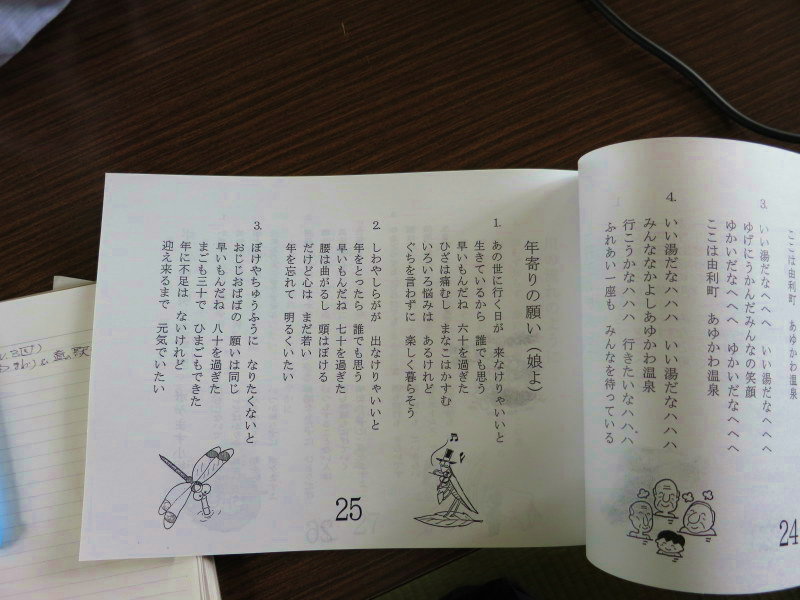 ここは由利町　あゆかわ温泉
3.
いい湯だなへへへ　いい湯だなへへへ
ゆげにうかんだみんなの笑顔
ゆかいだなへへへ　ゆかいだなへへへ
ここは由利町　あゆかわ温泉
4.
いい湯だなハハハ　いい湯だなハハハ
みんななかよしあゆかわ温泉
行こうかなハハハ　行きたいなハハハ
ふれあい一座も　みんなを待っている
24
年寄りの願い（娘よ）
1.
あの世に行く日が　来なけりゃいいと
生きているから　誰でも思う
早いもんだね　六十を過ぎた
ひざは痛むし　まなこはかすむ
いろいろ悩みは　あるけれど
ぐちを言わずに　楽しく暮らそう
2.
しわやしらがが　出なけりゃいいと
年をとったら　誰でも思う
早いもんだね　七十を過ぎた
腰は曲がるし　頭はぼける
だけど心は　まだ若い
年を忘れて　明るくいたい
3.
ぼけやちゅうふうに　なりたくないと
おじじおばばの　願いは同じ
早いもんだね　八十を過ぎた
まごも三十で　ひまごもできた
年に不足は　ないけれど
迎え来るまで　元気でいたい
25